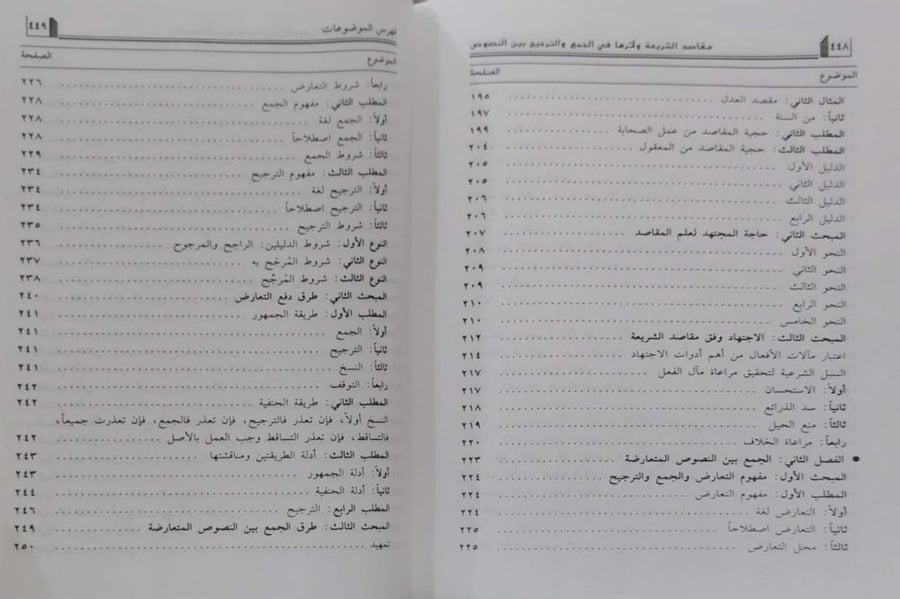 ٤٤٨ مقاصد الشريعة وأثرها في الجمع والترجيح بين النصوص
الموضوع الصفحة
المثال الثاني: مقصد العدل ١٩٥
ثانياً: من السنة ١٩٧
المطلب الثاني: حجية المقاصد من عمل الصحابة ١٩٩
المطلب الثالث: حجية المقاصد من المعقول ٢٠٤
الدليل الأول ٢٠٥
الدليل الثاني ٢٠٥
الدليل الثالث ٢٠٦
الدليل الرابع ٢٠٦
المبحث الثاني: حاجة المجتهد لعلم المقاصد ٢٠٧
النحو الأول ٢٠٨
النحو الثاني ٢٠٩
النحو الثالث ٢٠٩
النحو الرابع ٢١٠
النحو الخامس ٢١٠
المبحث الثالث: الاجتهاد وفق مقاصد الشريعة ٢١٢
اعتبار مآلات الأفعال من أهم أدوات الاجتهاد ٢١٤
السبل الشرعية لتحقيق مراعاة مآل الفعل ٢١٧
أولاً: الاستحسان ٢١٧
ثانياً: سد الذرائع ٢١٨
ثالثاً: منع الحيل ٢١٩
رابعاً: مراعاة الخلاف ٢٢٠
● الفصل الثاني: الجمع بين النصوص المتعارضة ٢٢٣
المبحث الأول: مفهوم التعارض والجمع والترجيح ٢٢٤
المطلب الأول: مفهوم التعارض ٢٢٤
أولاً: التعارض لغة ٢٢٤
ثانياً: التعارض اصطلاحاً ٢٢٥
ثالثاً: محل التعارض ٢٢٥
فهرس الموضوعات ٤٤٩
الموضوع الصفحة
رابعاً: شروط التعارض ٢٢٦
المطلب الثاني: مفهوم الجمع ٢٢٨
أولاً: الجمع لغة ٢٢٨
ثانياً: الجمع اصطلاحاً ٢٢٨
ثالثاً: شروط الجمع ٢٢٩
المطلب الثالث: مفهوم الترجيح ٢٣٤
أولاً: الترجيح لغة ٢٣٤
ثانياً: الترجيح إصطلاحاً ٢٣٤
ثالثاً: شروط الترجيح ٢٣٥
النوع الأول: شروط الدليلين: الراجح والمرجوح ٢٣٦
النوع الثاني: شروط المُرجّح به ٢٣٧
النوع الثالث: شروط المُرجِّح ٢٣٨
المبحث الثاني: طرق دفع التعارض ٢٤٠
المطلب الأول: طريقة الجمهور ٢٤١
أولاً: الجمع ٢٤١
ثانياً: الترجيح ٢٤١
ثالثاً: النسخ ٢٤١
رابعاً: التوقف ٢٤٢
المطلب الثاني: طريقة الحنفية ٢٤٢
النسخ أولاً، فإن تعذر فالترجيح، فإن تعذر فالجمع، فإن تعذرت جميعاً،
فالتساقط، فإن تعذر التساقط وجب العمل بالأصل ٢٤٢
المطلب الثالث: أدلة الطريقتين ومناقشتها ٢٤٣
أولاً: أدلة الجمهور ٢٤٣
ثانياً: أدلة الحنفية ٢٤٤
المطلب الرابع: الترجيح ٢٤٦
المبحث الثالث: طرق الجمع بين النصوص المتعارضة ٢٤٩
تمهيد ٢٥٠